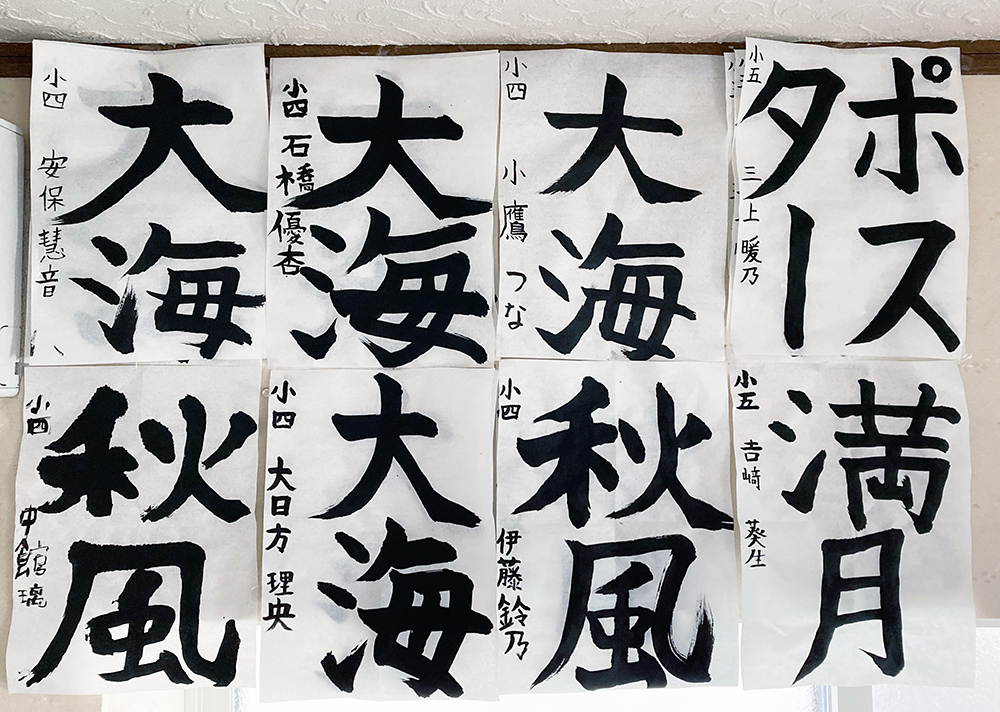 大海
小四 安保慧音
大海
小四 石橋優杏
大海
小四 小鷹つな
ポス
ター
小五 三上暖乃
秋風
小四 中館璃
大海
小四 大日方理央
秋風
小四 伊藤鈴乃
満月
小五 吉﨑葵生